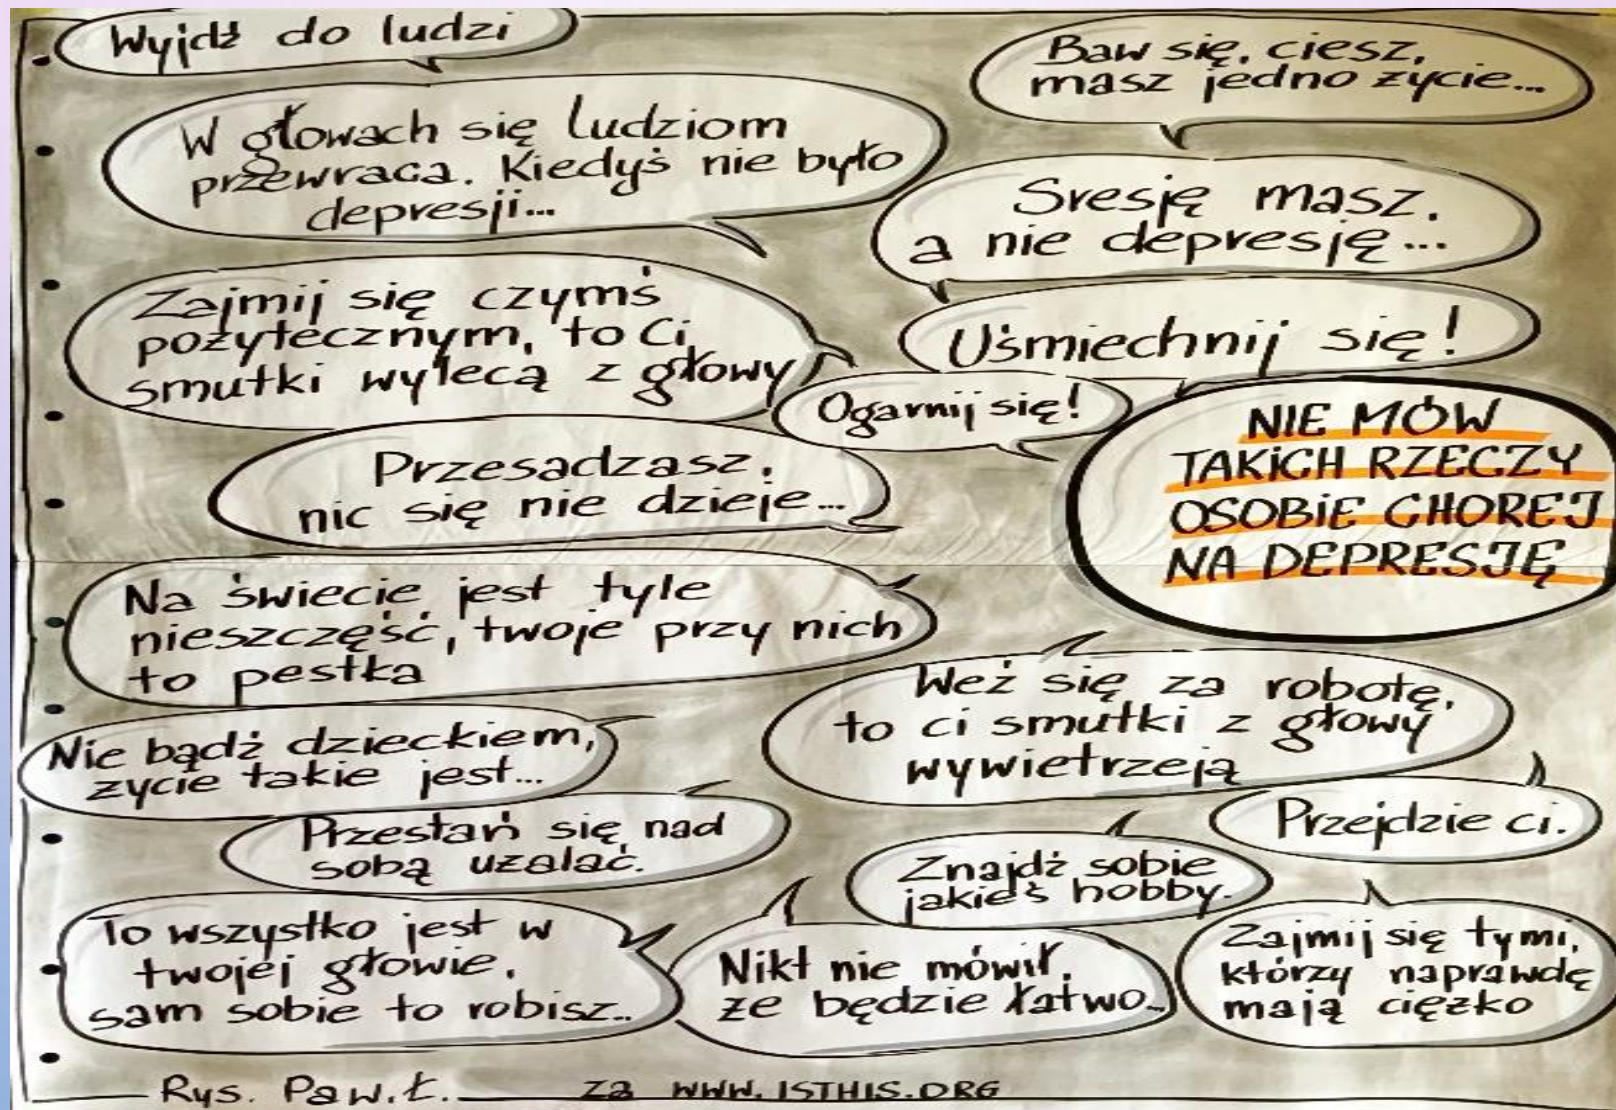 Wyjdź do ludzi
Baw się, ciesz,
masz jedno życie...
W głowach się ludziom
przewraca. Kiedyś nie było
depresji...
Sresję masz,
a nie depresję...
Zajmij się czymś
pożytecznym, to Ci
smutki wylecą z głowy
Uśmiechnij się!
Ogarnij się!
NIE MÓW
TAKICH RZECZY
OSOBIE CHOREJ
NA DEPRESJĘ
Przesadzasz,
nic się nie dzieje...
Na świecie jest tyle
nieszczęść, twoje przy nich
to pestka
Weź się za robotę,
to ci smutki z głowy
wywietrzeją
Nie bądź dzieckiem,
życie takie jest...
Przejdzie ci.
Przestań się nad
sobą użalać.
Znajdź sobie
jakieś hobby.
To wszystko jest w
twojej głowie,
sam sobie to robisz..
Nikt nie mówił,
że będzie łatwo...
Zajmij się tymi,
którzy naprawdę
mają ciężko
Rys. Paw.Ł. za WWW.ISTHIS.ORG